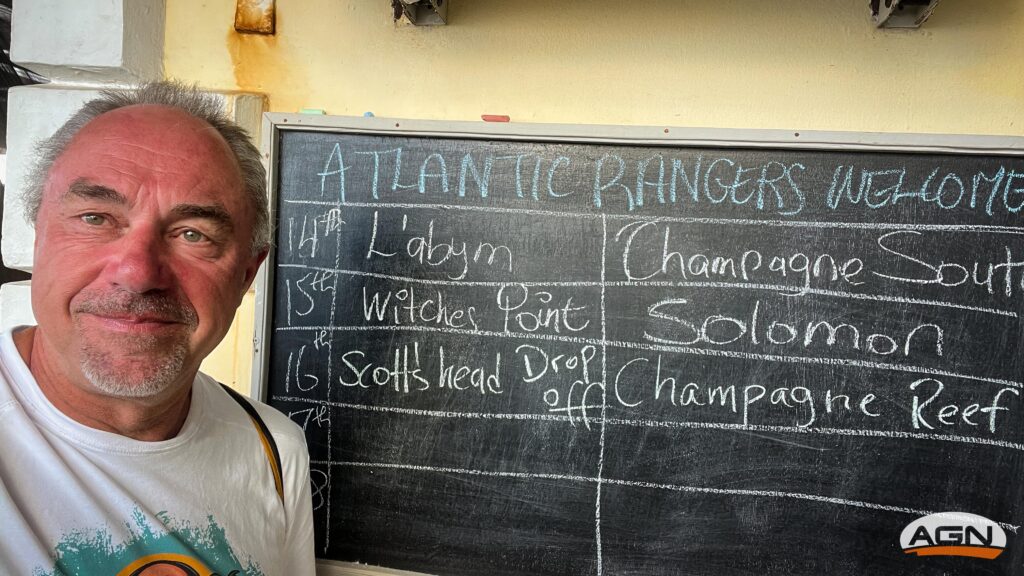 ATLANTIC RANGERS WELCOME
14th L'abym Champagne South
15th Witches Point Solomon
16th Scott's head Drop off Champagne Reef
17th
8
AGN